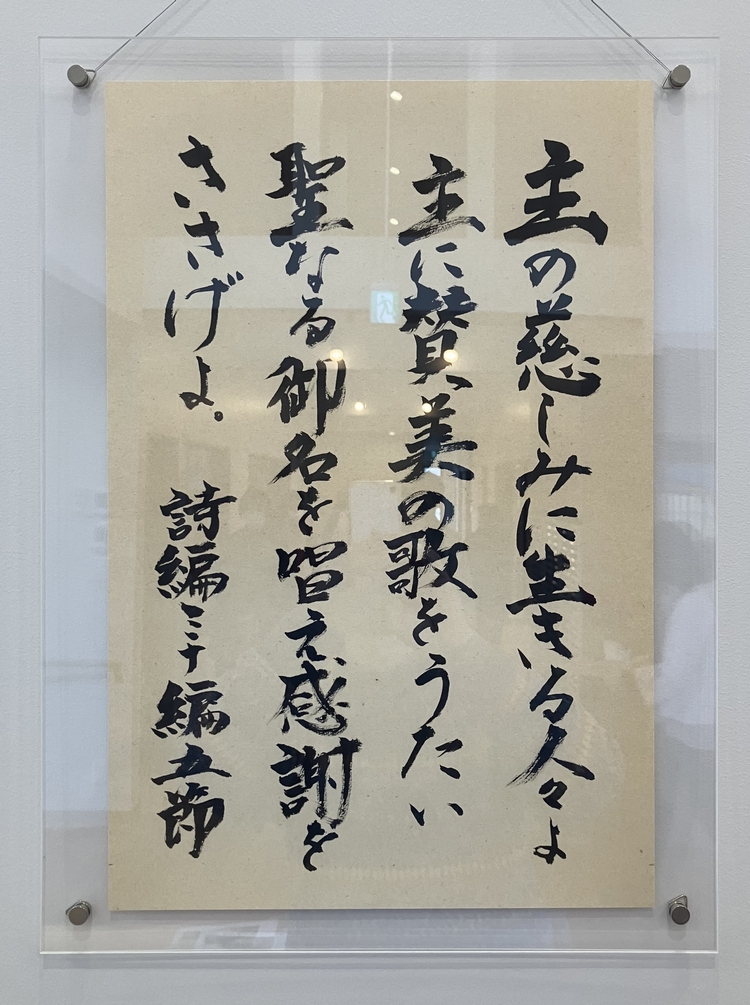 主の慈しみに生きる人々よ
主に賛美の歌をうたい
聖なる御名を唱え感謝を
ささげよ。
詩編三十編五節